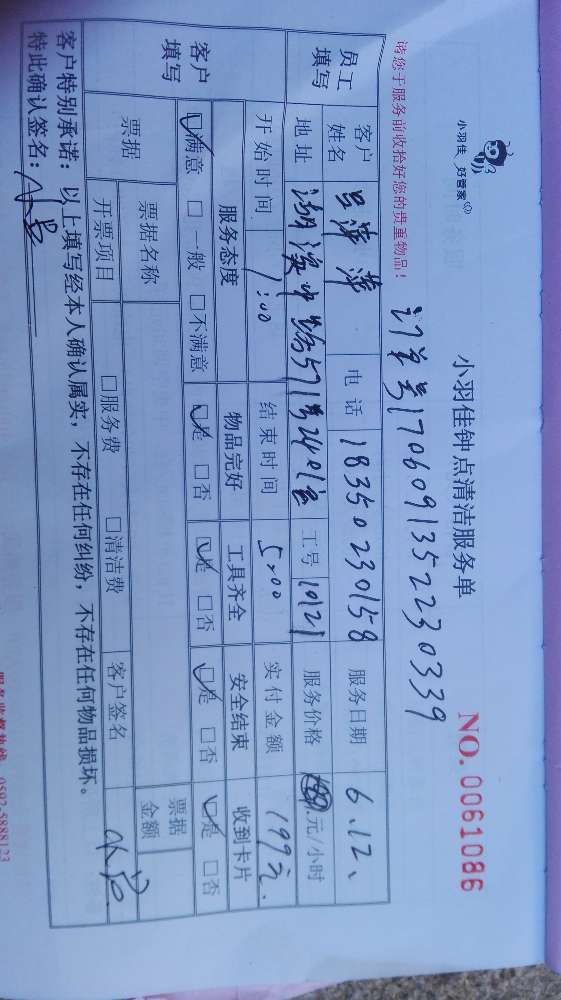 小羽佳 好管家
小羽佳钟点清洁服务单
NO. 0061086
请您于服务前收拾好您的贵重物品！
订单号170609135223 0339
员工填写 客户姓名 吕萍萍 电话 18350230158 服务日期 6.12、
地址 湖滨中路571号2401室 工号 1012 服务价格 元/小时
开始时间 1:00 结束时间 5:00 实付金额 199元.
客户填写 服务态度 物品完好 工具齐全 安全结束 收到卡片
☑满意 □一般 □不满意 ☑是 □否 ☑是 □否 ☑是 □否 ☑是 □否
票据 票据名称 票据金额
开票项目 □服务费 □清洁费 客户签名
客户特别承诺：以上填写经本人确认属实，不存在任何纠纷，不存在任何物品损坏。
特此确认签名：
服务监督热线 0592-5888123